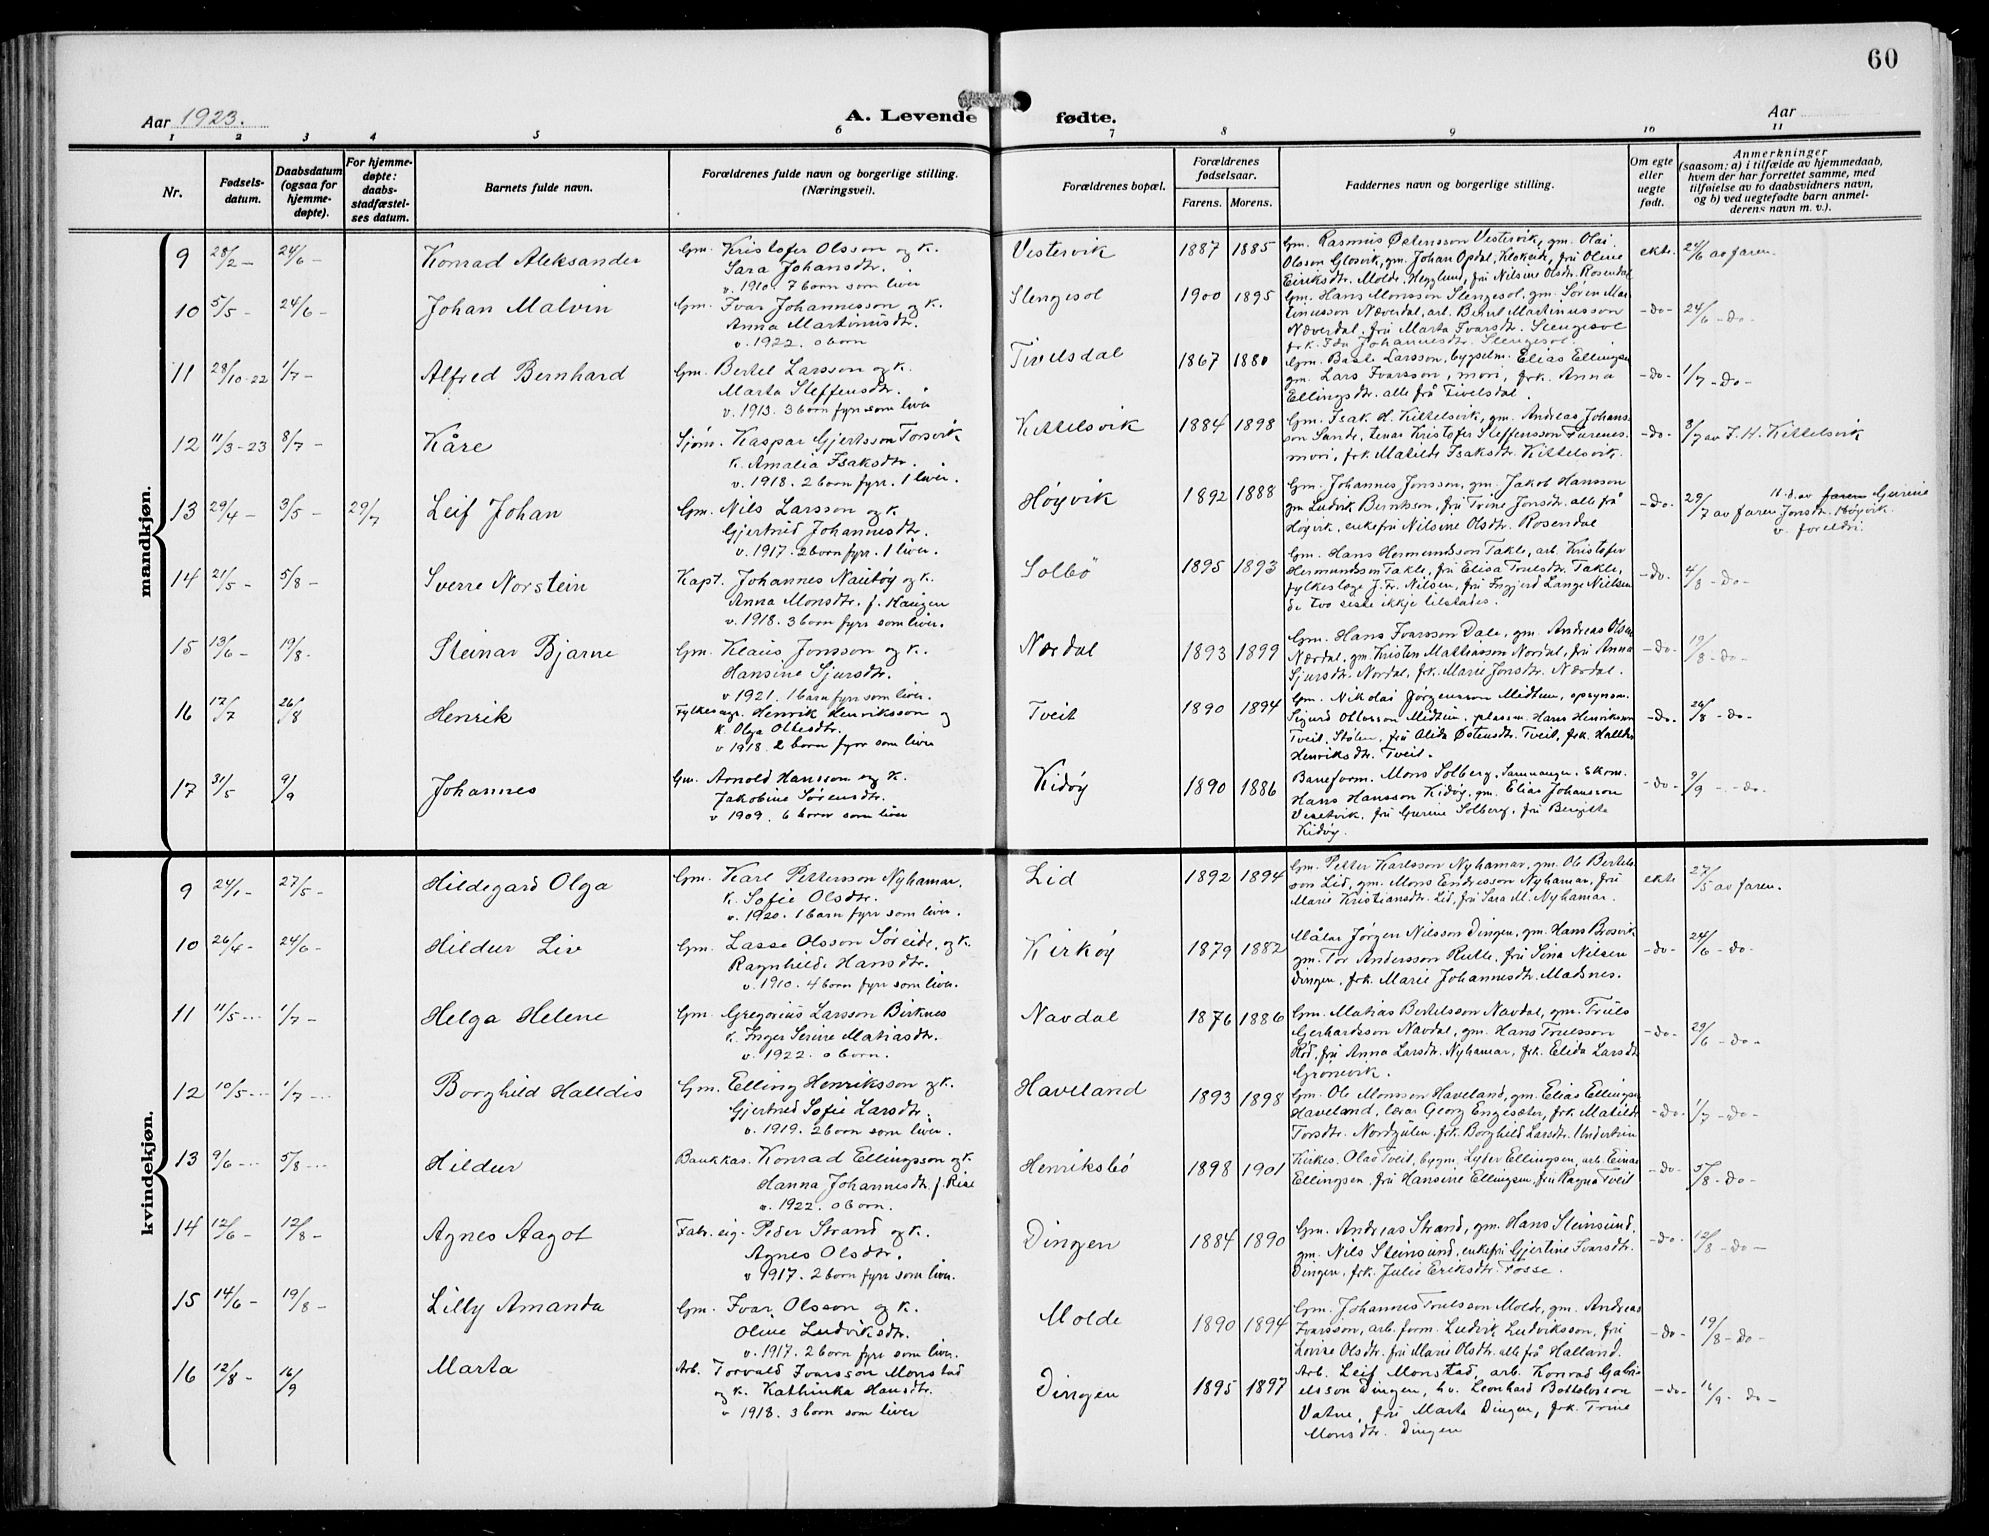 60
Aar 1923.
A. Levende fødte.
Aar
1 2 3 4 5 6 7 8 9 10 11
Nr.
Fødsels-
datum.
Daabsdatum
(ogsaa for
hjemme-
døpte).
For hjemme-
døpte:
daabs-
stadfæstel-
ses datum.
Barnets fulde navn.
Forældrenes fulde navn og borgerlige stilling.
(Næringsvei).
Forældrenes bopæl.
Forældrenes
fødselsaar.
Farens. Morens.
Faddernes navn og borgerlige stilling.
Om egte
eller
uegte
født.
Anmerkninger
(saasom: a) i tilfælde av hjemmedaab,
hvem der har forrettet samme, med
tilføielse av to daabsvidners navn,
og b) ved uegtefødte barn anmel-
derens navn m. v.).
mandkjøn.
9 28/2 - 24/6 - Konrad Aleksander
Gm. Kristofer Olsson og k.
Sara Johansdtr.
v. 1910. 7 born som liver
Vestervik 1887 1885
Gm. Rasmus Østensson Vestervik, gm. Olai
Olsson Glosvik, gm. Johan Opdal, Klokeide, fru Oline
Eiriksdtr. Molde, Hegglund, fru Nilsine Olsdtr. Rosendal
ekte. 24/6 av faren.
10 5/5 - 24/6 - Johan Malvin
Gm. Ivar Johannesson og k.
Anna Martinusdtr.
v. 1922. 0 born
Slengesol 1900 1895
Gm. Hans Monsson Slengesol, gm. Søren Mar-
tinusson Næverdal, arb. Bernt Martinusson
Næverdal, fru Marta Ivarsdtr. Slengesol
frk. Ida Johannesdtr. Slengesol.
-do- 24/6 -do-
11 28/10-22 1/7 - Alfred Bernhard
Gm. Bertel Larsson og k.
Marta Steffensdtr.
v. 1913. 3 born fyrr som liver
Tivelsdal 1867 1880
Gm. Baste Larsson, bygselm. Elias Ellingsen
gm. Lars Ivarsson, mori, frk. Anna
Ellingsdtr. alle frå Tivelsdal.
-do- 1/7 -do-
12 11/3-23 8/7 - Kåre
Sjøm. Kaspar Gjertsson Torsvik
k. Amalia Isaksdtr.
v. 1918. 2 born fyrr. 1 liver.
Kittelsvik 1884 1898
Gm. Isak H. Kittelsvik, gm. Andreas Johans-
son Sande, tenar Kristofer Steffensson Furenes.
mori, frk. Matilde Isaksdtr. Kittelsvik.
-do- 8/7 av I. H. Kittelsvik
13 29/4 - 3/5 - 29/7 Leif Johan
Gm. Nils Larsson og k
Gjertrud Johannesdtr.
v. 1917. 2 born fyrr. 1 liver.
Høyvik 1892 1888
Gm. Johannes Jonsson, gm. Jakob Hansson
gm Ludvik Berntson, fru Trine Jonsdtr. alle frå
Høyvik, enkefru Nilsine Olsdtr. Rosendal
-do- 29/7 av faren H.d. av faren Gurine
Jonsdtr. Høyvik
v. foreldri.
14 21/5 - 5/8 - Sverre Norstein
Kapt. Johannes Nautøy og k.
Anna Monsdtr. f. Haugen
v. 1918. 3 born fyrr som liver.
Solbö 1895 1893
Gm. Hans Hermundsson Takle, arb. Kristofer
Hermundsson Takle, fru Elisa Trulsdtr. Takle,
fylkeslege J. Fr. Nilsen, fru Ingjerd Lange Nielsen
de tvo siste ikkje tilstades.
-do- 4/8 -do-
15 13/6 - 19/8 - Steinar Bjarne
Gm. Klaus Jonsson og k.
Hansine Sjursdtr.
v. 1921. 1 barn fyrr som liver.
Nærdal 1893 1899
Gm. Hans Ivarsson Dale, gm. Andreas Olsen
Nærdal, gm. Kristen Mattiasson Nordal, fru Anna
Sjursdtr. Nordal, frk. Marie Jonsdtr. Nærdal.
-do- 19/8 -do-
16 17/7 26/8 Henrik
Fylkesagr. Henrik Henriksson og
k. Olga Ottesdtr.
v 1918. 2 born fyrr som liver
Tveit 1890 1894
Gm. Nikolai Jørgensson Midtun, opsynsm.
Sigurd Ottosson Midtun, plassm. Hans Henriksson
Tveit, Stølen, fru Alida Østensdtr. Tveit, frk. Halldis
Henriksdtr. Tveit.
-do- 26/8 -do-
17 31/5 9/9 Johannes
Gm. Arnold Hansson og k.
Jakobine Sørensdtr.
v 1909. 6 born som liver
Kidøy 1890 1886
Baneform. Mons Solberg, Samnanger. Skom.
Hans Hansson Kidøy, gm. Elias Johansson
Visetvik, fru Gurine Solberg, fru Bergitte
Kidøy.
-do- 9/9 -do-
kvindekjøn.
9 24/1 - 27/5 - Hildegard Olga
Gm. Karl Pettersson Nyhamar.
k. Sofie Olsdtr.
v. 1920. 1 barn fyrr som liver.
Lid 1892 1894
Gm. Petter Karlsson Nyhamar, gm. Ole Bertels-
son Lid, gm. Mons Endresson Nyhamar, fru
Marie Kristiansdtr. Lid, fru Sara M. Nyhamar.
ekte 27/5 av faren.
10 26/4 - 24/6 - Hildur Liv
Gm. Lasse Olsson Søreide, og k.
Ragnhild Hansdtr.
v. 1910. 4 born fyrr som liver.
Kirkøy 1879 1882
Målar Jørgen Nilsson Dingen, gm. Hans Brosvik
gm. Tor Andersson Rutle, fru Sina Nilsen
Dingen, frk. Marie Johannesdtr. Madsnes.
-do- 24/6 -do-
11 11/5 ... 1/7 - Helga Helene
Gm. Gregorius Larsson Birknes
k. Inger Serine Matiasdtr.
v. 1922. 0 born.
Navdal 1876 1886
Gm. Matias Bertelsson Navdal, gm. Truls
Gerhardsson Navdal, gm. Hans Trulsson
Röd, fru Anna Larsdtr. Nyhamar, frk. Elida Larsdtr
Grönevik.
-do- 29/6 -do-
12 10/5 ... 1/7 ... Borghild Halldis
Gm. Elling Henriksson og k.
Gjertrud Sofie Larsdtr.
v. 1919. 2 born som liver.
Haveland 1893 1898
Gm. Ole Monsson Haveland, gm. Elias Ellingsen
Haveland, lærar Georg Engesæter, frk. Matilde
Torsdtr. Nordgulen, frk. Borghild Larsdtr. Undertun
-do- 1/7 -do-
13 9/6 ... 5/8 ... Hildur
Bankkas. Konrad Ellingsson og k.
Hanna Johannesdtr. f. Rise
v. 1922. 0 born.
Henriksbö 1898 1901
Kirkes. Olao Tveit, bygm. Lyder Ellingsen, arb. Einar
Ellingsen, fru Hansine Ellingsen, fru Ragna Tveit
-do- 5/8 -do-
14 12/6 - 12/8 - Agnes Aagot
Fabr. eig. Peder Strand og k.
Agnes Olsdtr.
v 1917. 2 born fyrr som liver.
Dingen 1884 1890
Gm. Andreas Strand, gm. Hans Steinsund,
gm. Nils Steinsund, enkefru Gjertine Ivarsdtr.
Dingen, frk. Julie Eriksdtr. Fosse.
-do- 12/8 -do-
15 14/6 - 19/8 - Lilly Amanda
Gm. Ivar Olsson og k.
Oline Ludviksdtr.
v. 1917. 2 born fyrr som liver.
Molde 1890 1894
Gm. Johannes Trulsson Molde, gm. Andreas
Ivarsson, arb. form. Ludvik Ludviksson, fru
Lovise Olsdtr. fru Marie Olsdtr. alle frå Halland.
-do- 19/8 -do-
16 12/8 - 16/9 Marta
Arb. Torvald Ivarsson Monstad
og k. Kathinka Hansdtr.
v 1918. 3 born som liver
Dingen 1895 1897
Arb. Leif Monstad, arb. Konrad Gabri-
elsson Dingen, hv. Leonhard Bottolvsson
Vatne, fru Marta Dingen, frk. Trine
Monsdtr. Dingen
-do- 16/9 -do-